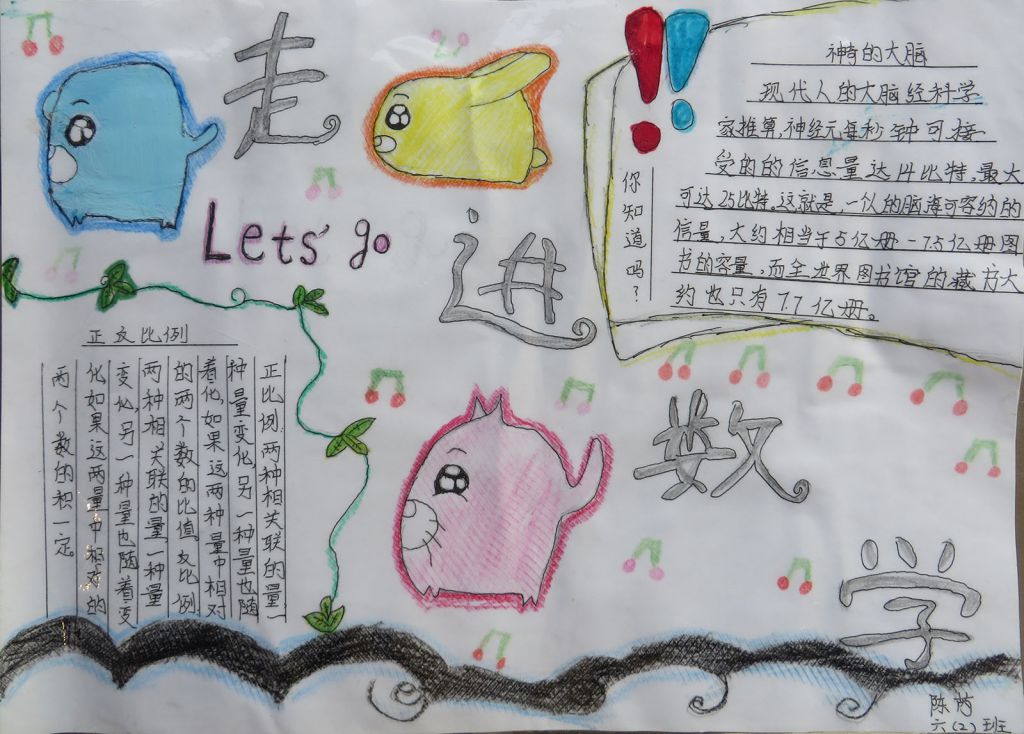 走
进
数
学
Lets' go
神奇的大脑
现代人的大脑经科学
家推算,神经元每秒钟可接
受的的信息量达14比特,最大
可达25比特。这就是,一个人的脑海可容纳的
信量,大约相当于5亿册-7.5亿册图
书的容量,而全世界图书馆的藏书大
约也只有7.7亿册。
你知道吗?
正反比例
正比例:两种相关联的量一
种量变化,另一种量也随
着化,如果这两种量中相对
的两个数的比值。反比例
两种相关联的量一种量
变化,另一种量也随着变
化如果这两量中相对的
两个数的积一定。
陈
六(2)班